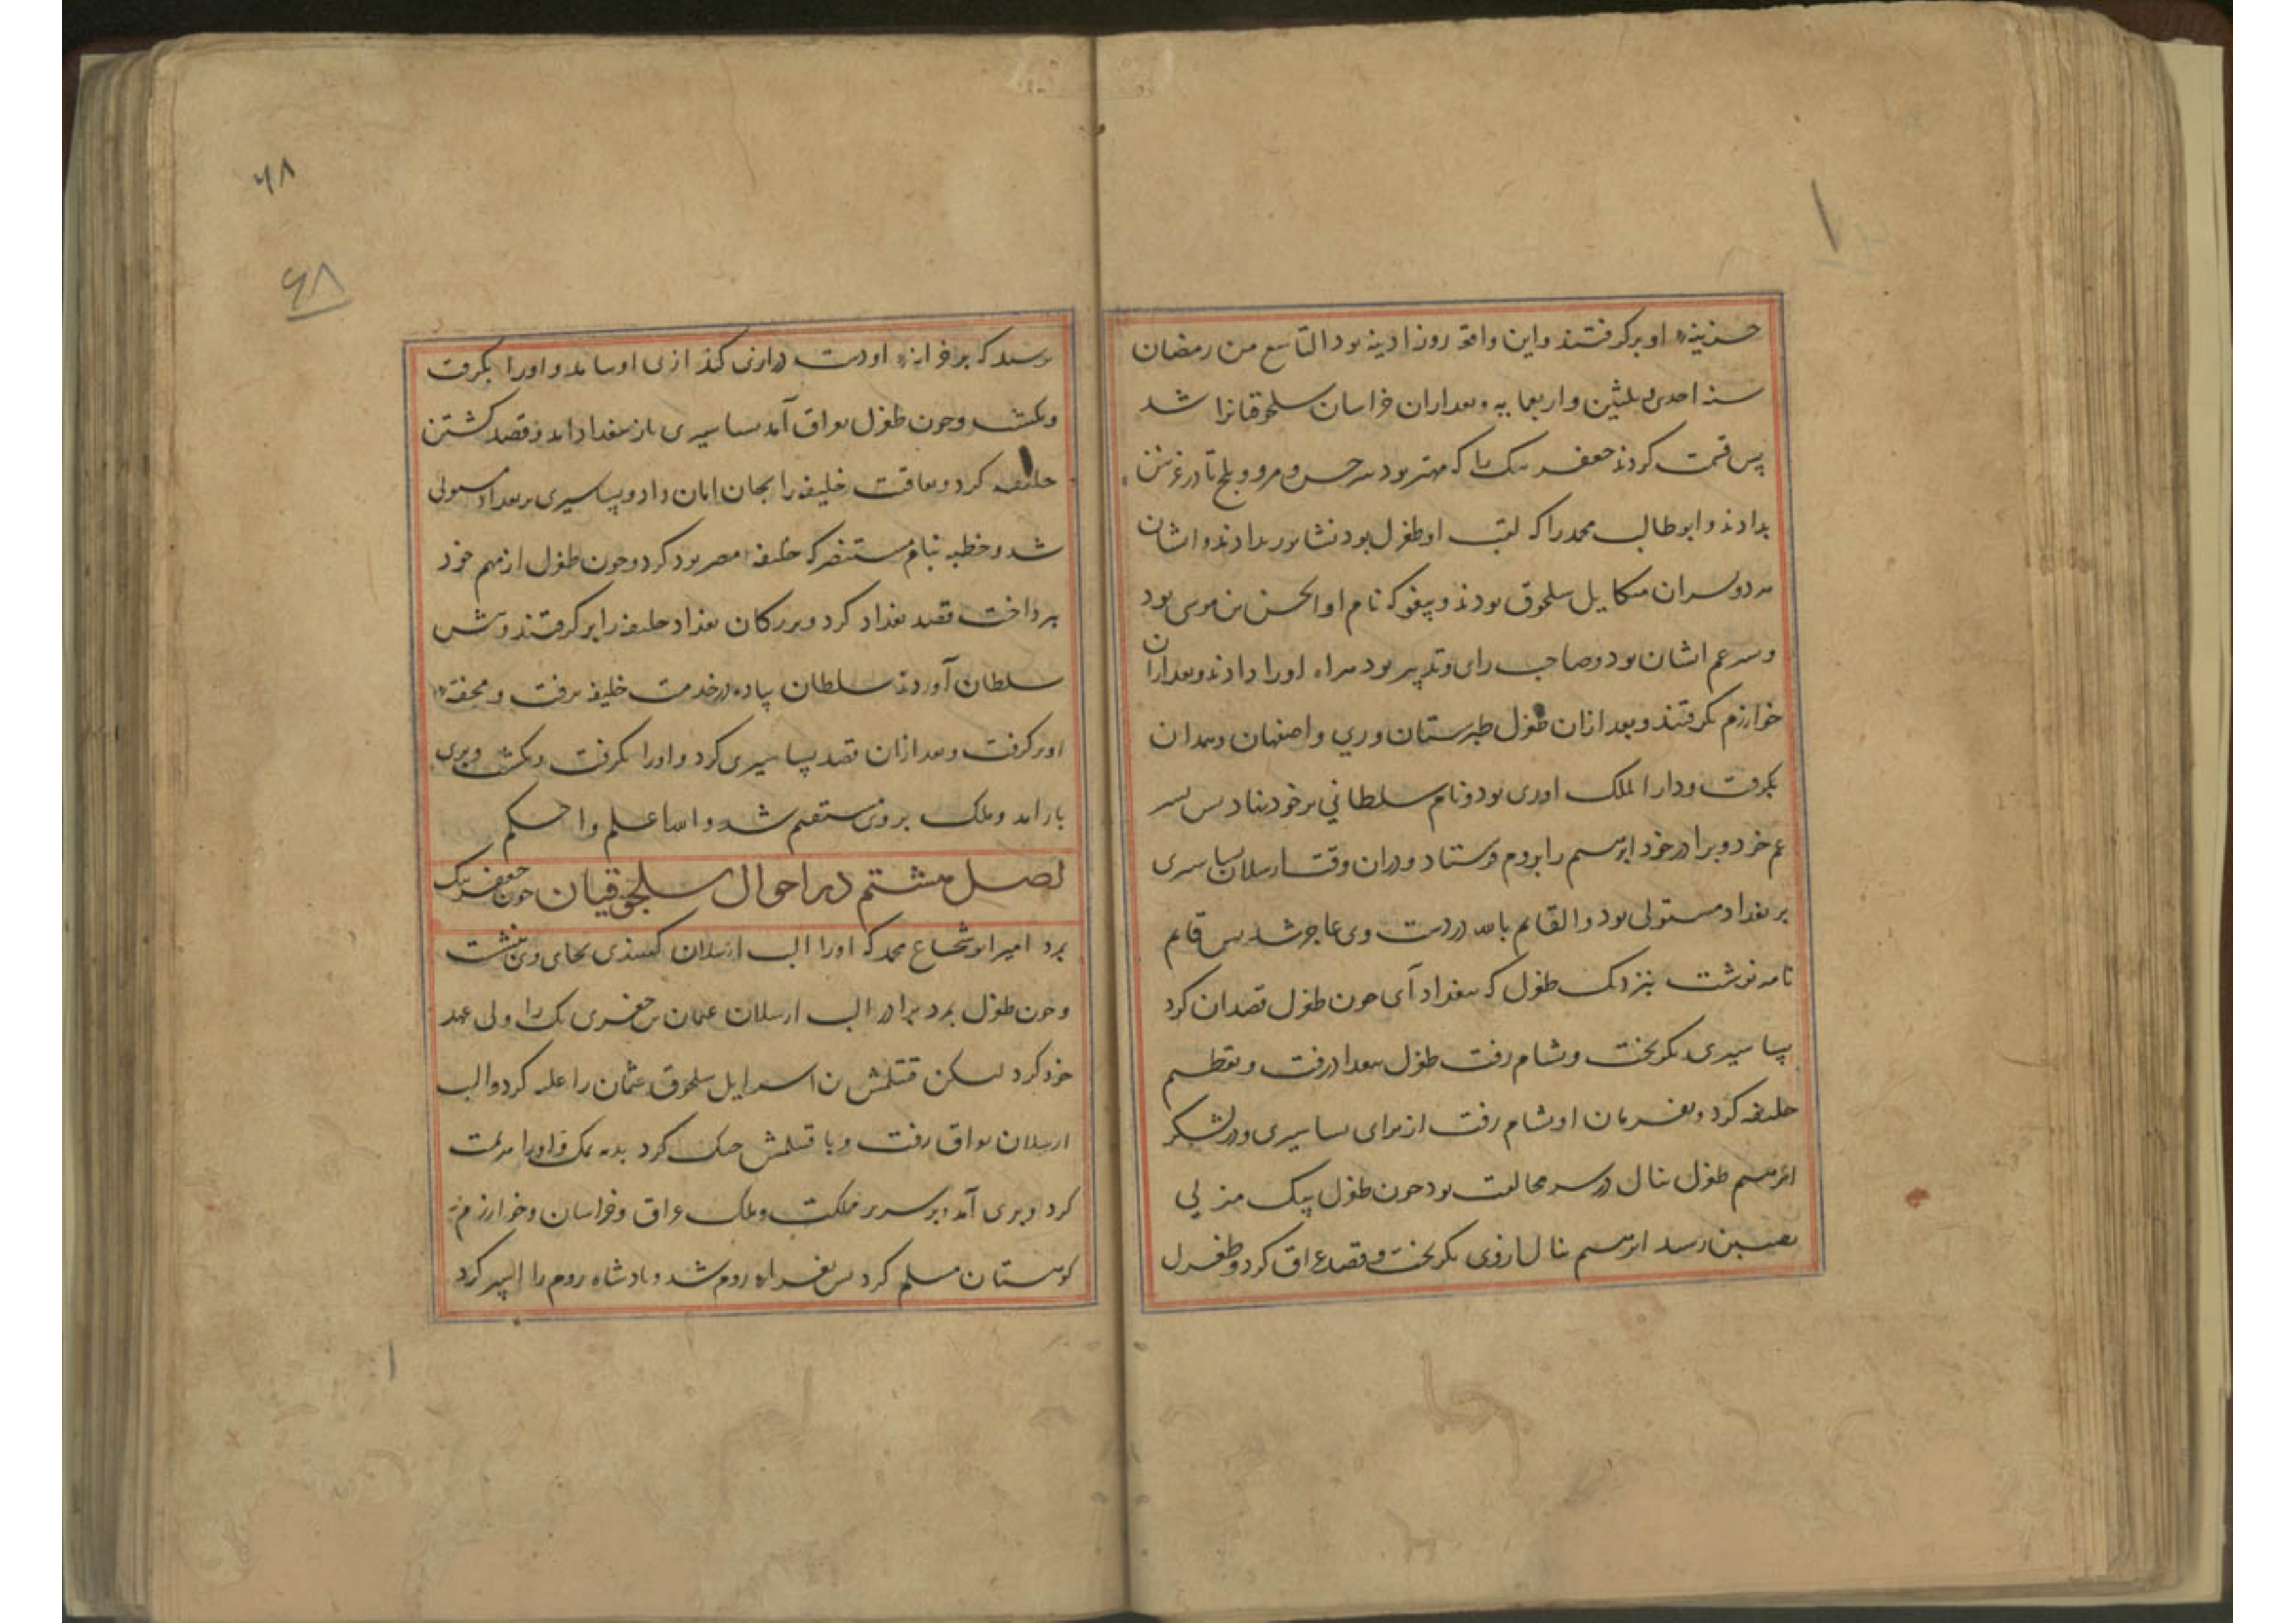 خزینه او برکرفتند واین واقعه روز ادینه بود التاسع من رمضان
سنه احدی وثلثین واربعمایه وبعد ازان خراسان سلجوقیانرا شد
پس قسمت کردند جعفر بیک را که مهتر بود سرخس ومرو وبلخ تا در غزنین
بدادند وابوطالب محمد را که لقب او طغرل بود نشابور بدادند وایشان
هر دو پسران میکایل سلجوق بودند وبیغو که نام او ابو الحسن بن موسی بود
وپسر عم ایشان بود وصاحب رای وتدبیر بود هراه اورا دادند وبعد ازان
خوارزم بگرفتند وبعد ازان طغرل طبرستان وری واصفهان وهمدان
بگرفت ودار الملک او ری بود ونام سلطانی بر خود نهاد پس پسر
عم خود وبرادر خود ابرهیم را بروم فرستاد ودران وقت ارسلان بساسیری
بر بغداد مستولی بود والقایم بالله در دست وی عاجز شد پس قایم
نامه نوشت بنزدیک طغرل که ببغداد آی چون طغرل قصد ان کرد
بساسیری بگریخت وبشام رفت طغرل ببغداد رفت وتعظیم
خلیفه کرد وبفرمان او بشام رفت از برای بساسیری ودر لشکر
ابرهیم طغرل ینال در سر مخالفت بود چون طغرل بیک منزلی
نصیبین رسید ابرهیم ینال از وی بگریخت وقصد عراق کرد وطغرل
۶۸
۶۸
برسید که بر خزانه او دست درازی کند از پی او بیامد واورا بگرفت
وبکشت وچون طغرل بعراق آمد بساسیری باز ببغداد امد وقصد کشتن
خلیفه کرد وبعاقبت خلیفه را بجان امان داد وبساسیری بر بغداد مستولی
شد وخطبه بنام مستنصر که خلیفه مصر بود کرد وچون طغرل از مهم خود
بپرداخت قصد بغداد کرد وبزرکان بغداد خلیفه را بر کرفتند وپیش
سلطان آوردند سلطان پیاده در خدمت خلیفه برفت ومحفه
او بر کرفت وبعد ازان قصد بساسیری کرد واورا بگرفت وبکشت وبری
باز امد وملک بر وی مستقیم شد والله اعلم واحکم
فصل هشتم در احوال سلجوقیان چون جعفر بیک
بمرد امیر ابو شجاع محمد که اورا الب ارسلان کفتندی بجای وی بنشست
وچون طغرل بمرد برادر الب ارسلان عثمان بن جغری بک را ولی عهد
خود کرد لیکن قتلمش بن اسرایل سلجوق عثمان را غلبه کرد والب
ارسلان بعراق رفت وبا قتلمش جنک کرد بدیه نمک واورا هزیمت
کرد وبری آمد وبر سریر مملکت وملک عراق وخراسان وخوارزم
کوهستان مسلم کرد پس بغزاه روم شد وپادشاه روم را اسیر کرد